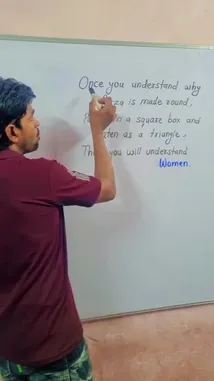 Once you understand why
is made round,
in a square box and
as a triangle,
you will understand
Women.